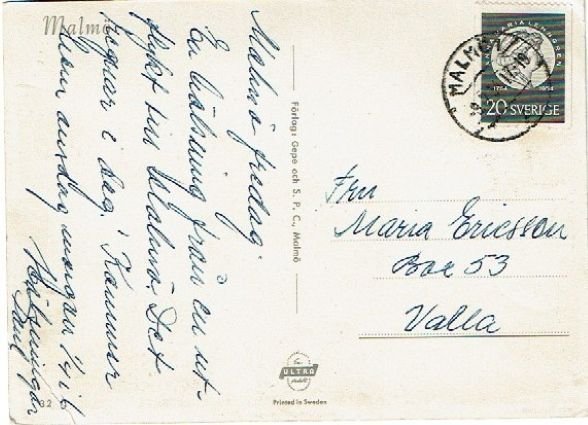 Malmö
Malmö fredag.
En hälsning från en ut-
flykt till Malmö. Det
regnar i dag. Kommer
hem onsdag morgon
Hälsningar
32
Förlag: Gepe och S. P. C., Malmö
ULTRA
Printed in Sweden
MALMÖ 1
ANNA MARIA LENNGREN
1754 1954
20 SVERIGE
Fru
Maria Ericsson
Box 53
Valla